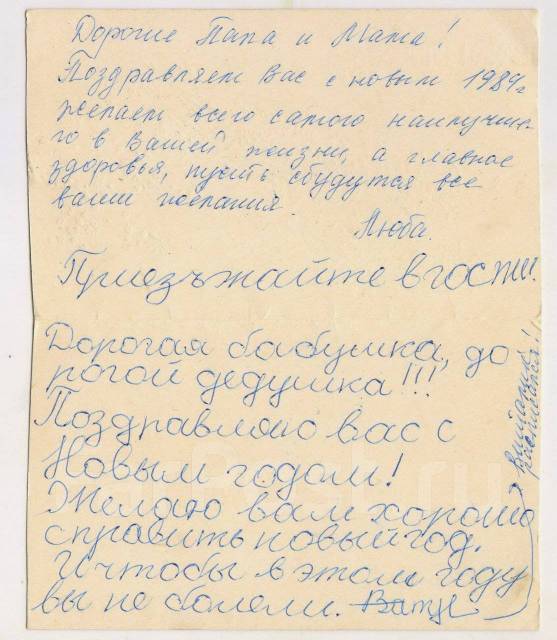 Дорогие Папа и Мама!
Поздравляем Вас с новым 1989г
желаем всего самого наилучше-
го в Вашей жизни, а главное
здоровья, пусть сбудутся все
ваши желания.
Люба.
Приезъжайте в гости!
Дорогая бабушка, до
рогой дедушка!!!
Поздравляю вас с
Новым годом!
Желаю вам хорошо
справить новый год.
И чтобы в этом году
вы не болели.